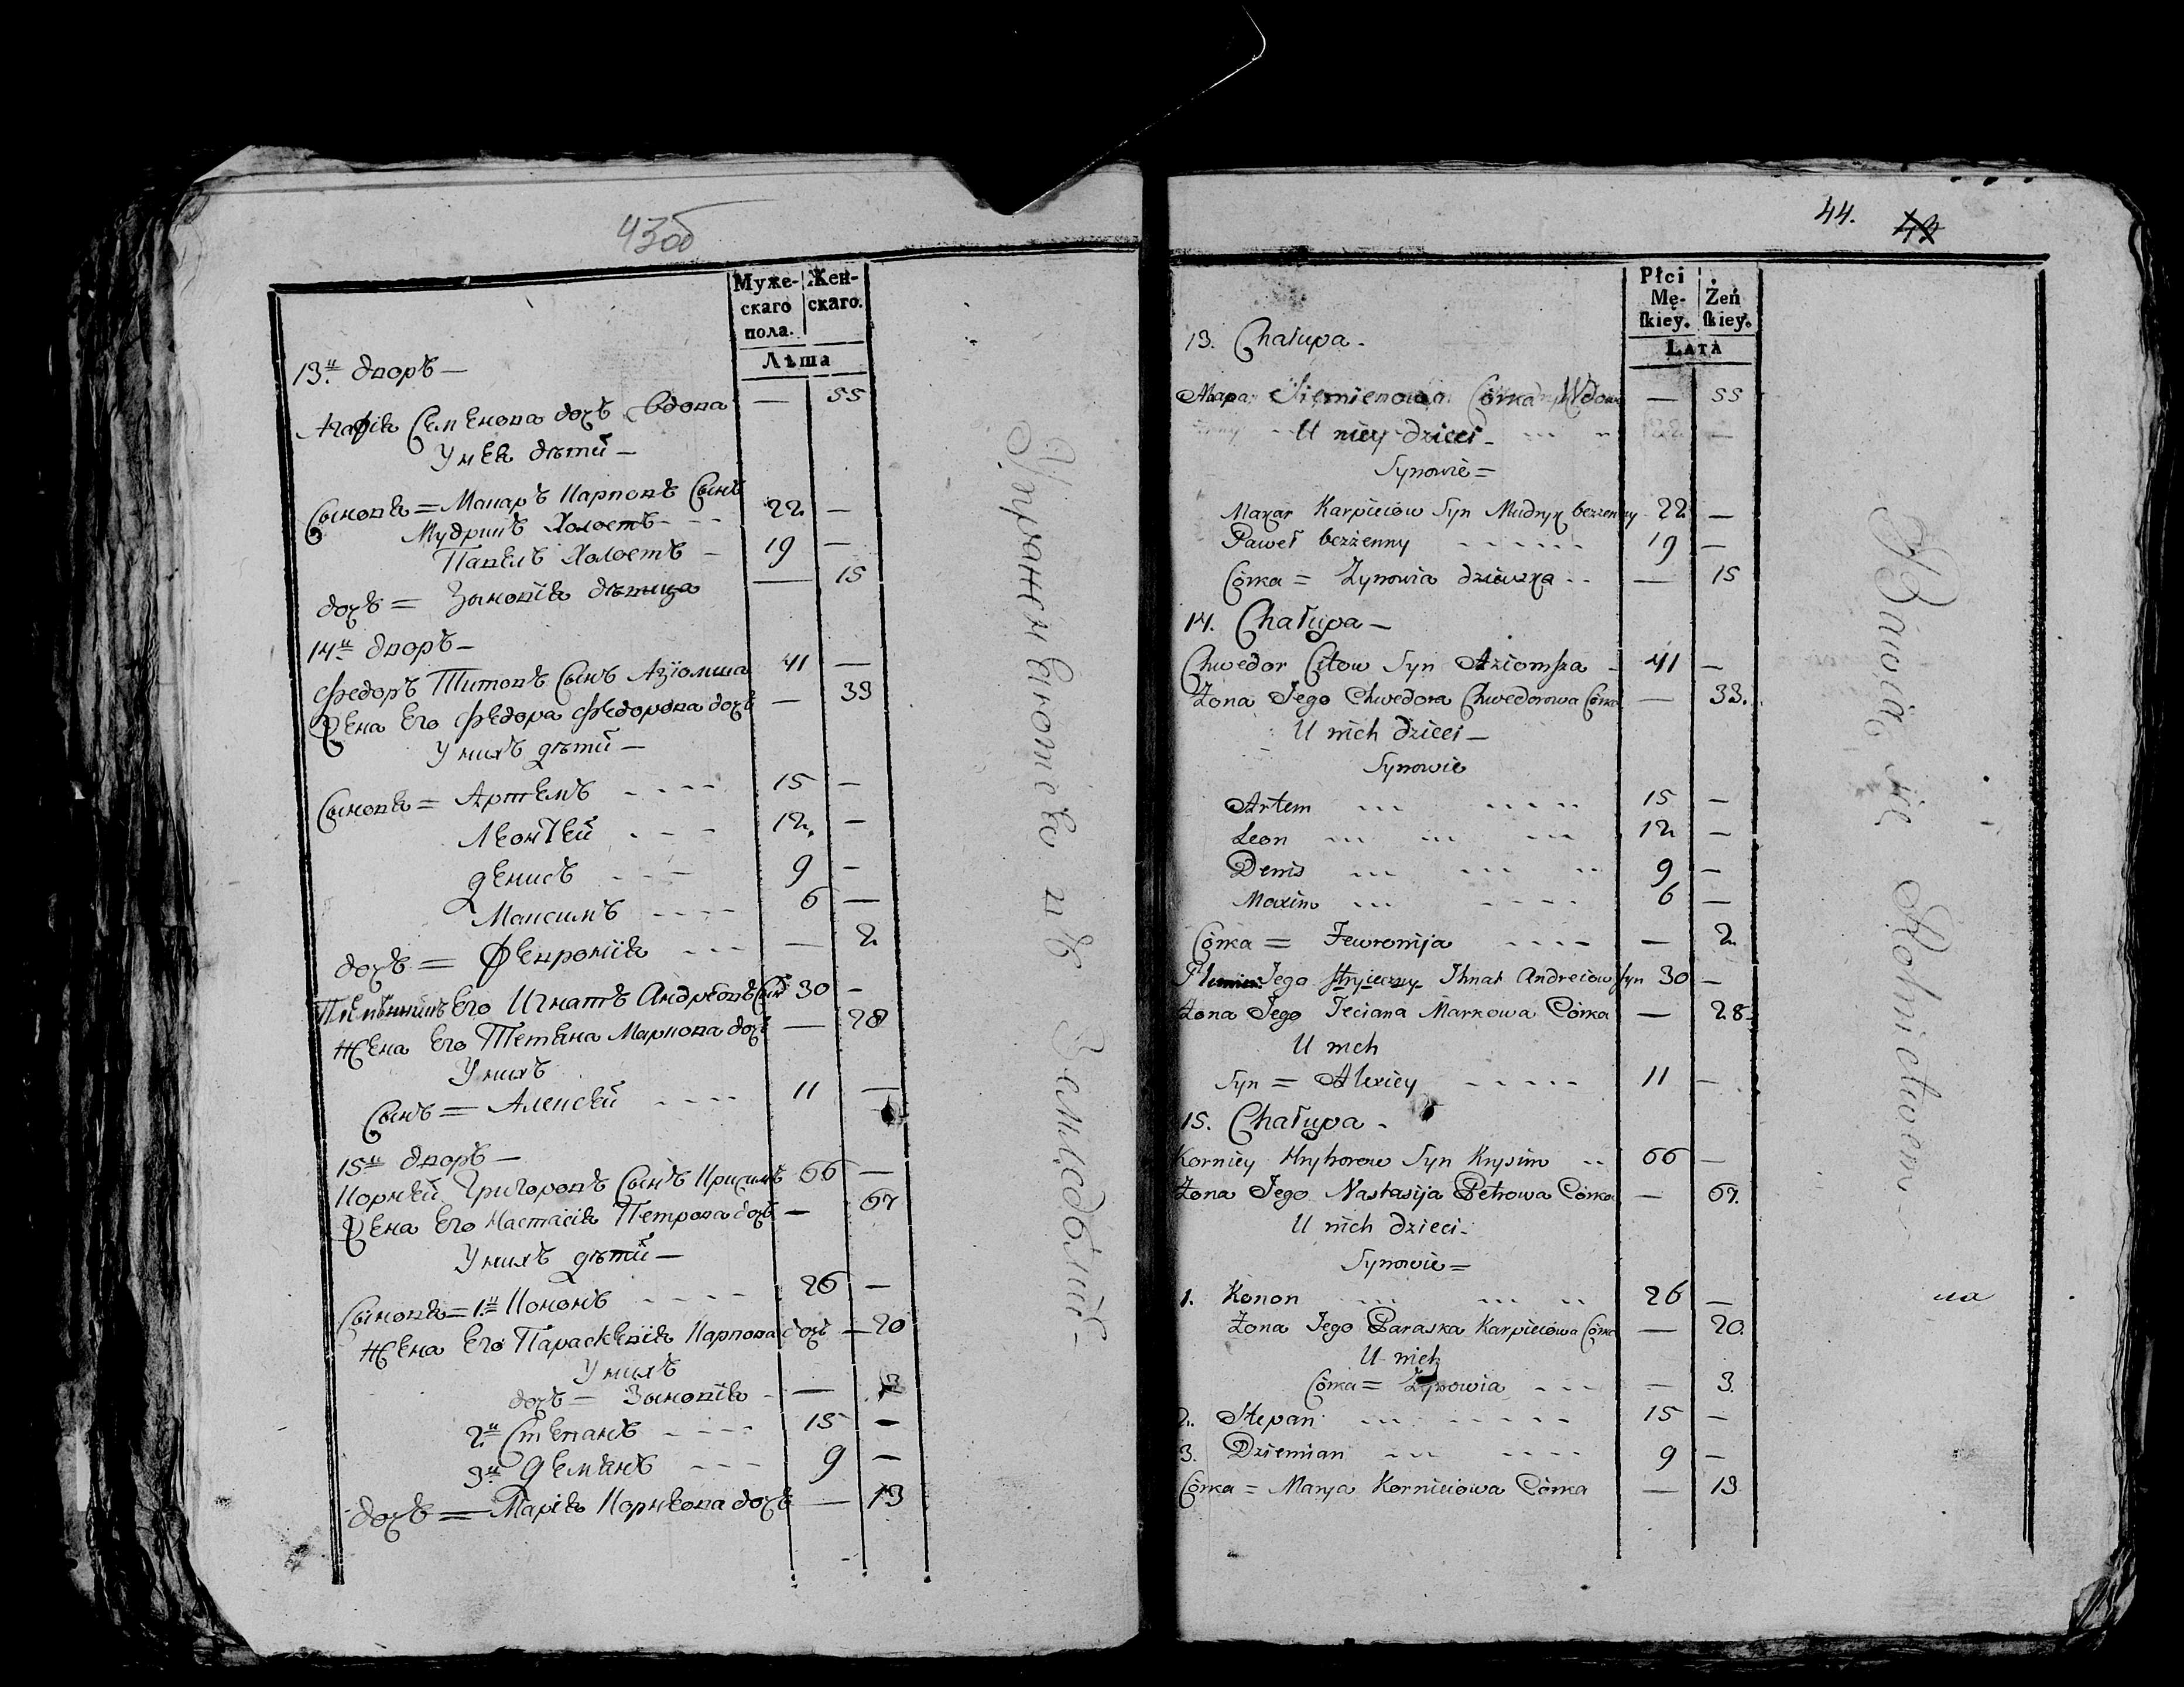 43об
Муже-
скаго
пола.
Жен-
скаго.
Лѣта
13й дворъ —
Агафія Семенова дочь вдова — 55
У нея дѣти —
Сыновя = Макаръ Карповъ Сынъ
Мудрикъ Холостъ - - 22 —
Павелъ Холостъ — 19 —
дочь = Зыновія дѣвица — 15
14й дворъ —
Федоръ Титовъ Сынъ Азіомша 41 —
Жена Его Федора Федорова дочь — 33
У нихъ дѣти —
Сыновя = Артемъ - - - - 15 —
Леонтей - - - 12. —
Денисъ - - - 9 —
Максимъ - - - - 6 —
дочь = Февронія - - - — 2
Его Игнатъ Андреовъ Сынъ 30 —
Жена Его Тетяна Маркова дочь — 28
У нихъ
Сынъ = Алексей - - - - 11 —
15й дворъ —
Корней Григоровъ Сынъ Крисимъ 66 —
Жена Его Настасія Петрова дочь — 67
У нихъ дѣти —
Сыновя = 1й Кононъ - - - - 26 —
Жена Его Параскевія Карпова дочь — 20
У нихъ
дочь = Зыновія - — 3
2й Степанъ - - - - 15 —
3й Демянъ - - - 9 —
дочь = Марія Корнеова дочь — 13
Упражняются въ Земледѣліи —
44. 42
Płci
Mę-
skiey.
Żeń
skiey.
Lata
13. Chałupa -
Ahapa: Siemienowa Córka Wdowa — 55
U niey dzieci -
Synowie =
Makar Karpieiów Syn Mudryk bezżenny 22 —
Paweł bezżenny - - - - - - 19 —
Córka = Zynowia dziewka - - — 15
14. Chałupa —
Chwedor Citow Syn Aziomsza - 41 —
Żona Jego Chwedora Chwedorowa Córka — 33.
U nich dzieci —
Synowie
Artem - - - - - - - 15 —
Leon - - - - - - - - - 12 —
Denis - - - - - - - - 9 —
Maxim - - - - - - - 6 —
Córka = Jewromija - - - - — 2.
Plemien: Jego stryieczny Ihnat Andreiow syn 30 —
Żona Jego Teciana Markowa Córka — 28.
U nich
Syn = Alexiey - - - - - 11 —
15. Chałupa -
Korniey Hryhorow Syn Krysim - - 66 —
Żona Jego Nastasija Petrowa Córka — 67.
U nich dzieci -
Synowie =
1. Konon - - - - - - - - 26 —
Żona Jego Paraska Karpieiówa Córka — 20.
U nich
Córka = Zynowia - - - — 3.
2. Stepan - - - - - - - - 15 —
3. Dziemian - - - - - - - 9 —
Córka = Marya Kornieiowa Córka — 13
Bawią się Rolnictwem —